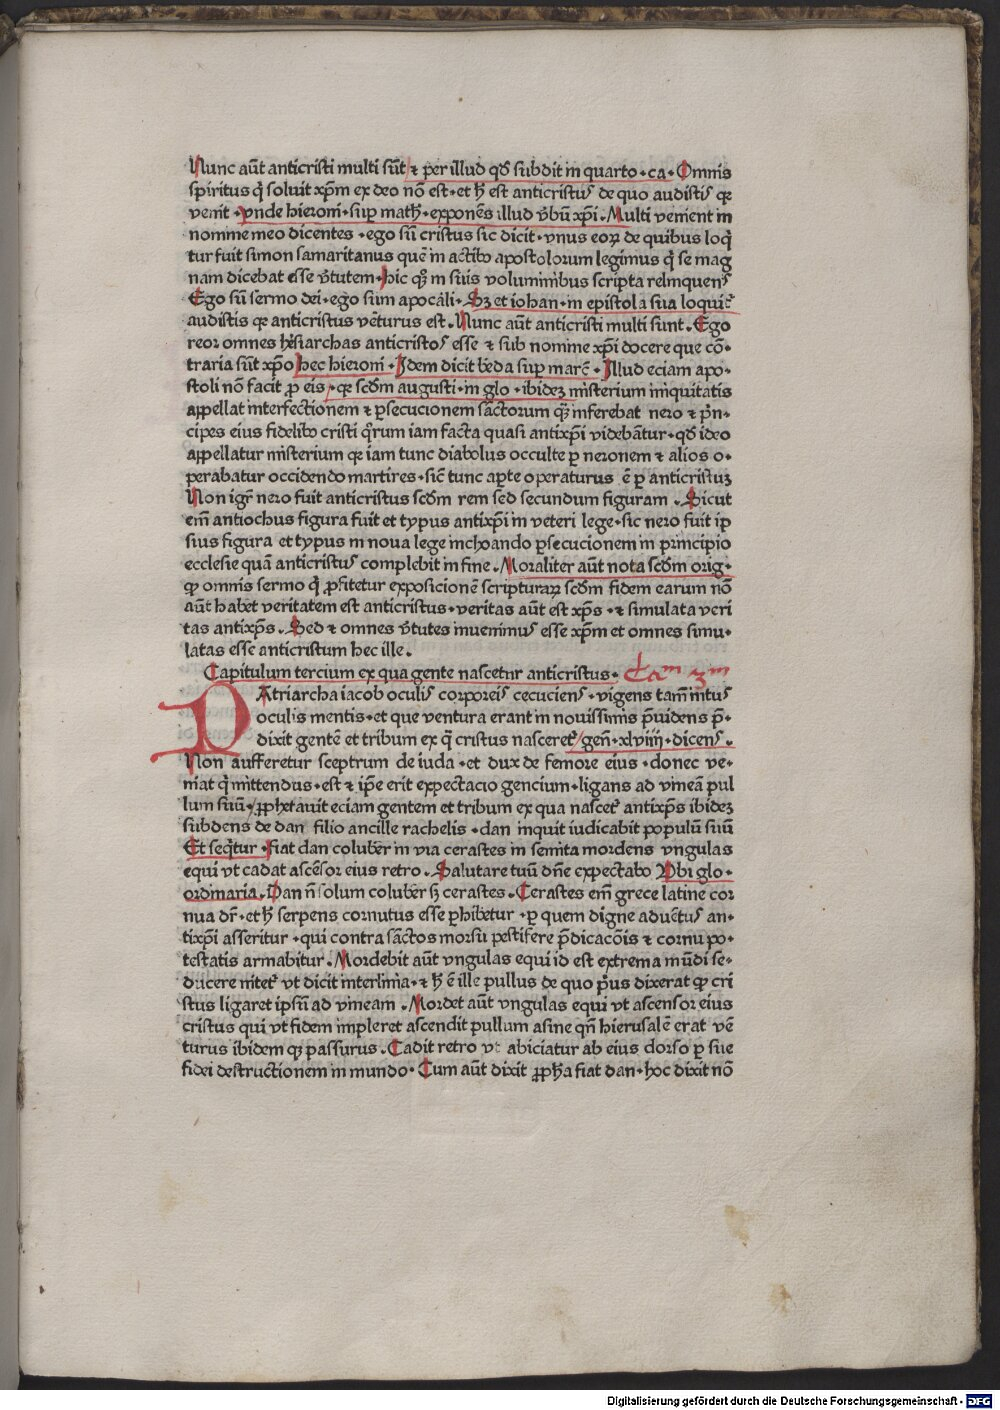 Nunc aūt anticristi multi sūt ⁊ per illud qđ subdit in quarto · ca · Omnis
spiritus q̄ soluit xp̄m ex deo nō est · et h̄ est anticristus de quo audistis qꝛ
venit · vnde hieroni · suꝑ math̄ · exponēs illud v̄bū xp̄i . Multi venient in
nomine meo dicentes · ego sū cristus sic dicit · vnus eoꝝ de quibus loq̄
tur fuit simon samaritanus quem in actibꝰ apostolorum legimus q̄ se mag
nam dicebat esse v̄tutem · hic qꝫ in suis voluminibus scripta relinquens
Ego sū sermo dei · ego sum apocali · Sꝫ et iohan · in epistola sua loquit᷑
audistis qꝛ anticristus vēturus est . Nunc aūt anticristi multi sunt . Ego
reor omnes h̄esiarchas anticristos esse ⁊ sub nomine xp̄i docere que cō-
traria sūt xp̄o hec hieroni · Idem dicit beda suꝑ marc̄ · Illud eciam apo-
stoli nō facit ꝓ eis · qꝛ scđm augusti · in glo · ibideꝫ misterium iniquitatis
appellat interfectionem ⁊ ꝑsecucionem sāctorum quā inferebat nero ⁊ p̄n-
cipes eius fidelibꝰ cristi qͦrum iam facta quasi antixp̄i videbātur · qđ ideo
appellatur misterium qꝛ iam tunc diabolus occulte ꝑ neronem ⁊ alios o-
perabatur occidendo martires · sic̄ tunc aꝑte operaturus ē ꝑ anticristuꝫ
Non igr̄ nero fuit anticristus scđm rem sed secundum figuram . Sicut
em̄ antiochus figura fuit et typus antixp̄i in veteri lege · sic nero fuit ip
sius figura et typus in noua lege inchoando ꝑsecucionem in principio
ecclesie quā anticristus complebit in fine . Moraliter aūt nota scđm orig ·
ꝙ omnis sermo q̄ ꝓfitetur exposicionē scripturaꝝ scđm fidem earum nō
aūt habet veritatem est anticristus · veritas aūt est xp̄s · ⁊ simulata veri
tas antixp̄s . Sed ⁊ omnes v̄tutes inuenimus esse xp̄m et omnes simu-
latas esse anticristum hec ille .
Capitulum tercium ex qua gente nascetur anticristus · Cam 3m
PAtriarcha iacob oculis corporeis cecuciens · vigens tam̄ intus
oculis mentis · et que ventura erant in nouissimis p̄uidens p̄-
dixit gentē et tribum ex q̄ cristus nasceret᷑ gen̄ · xlviiii · dicens .
Non aufferetur sceptrum de iuda · et dux de femore eius · donec ve-
niat q̄ mittendus · est ⁊ ip̄e erit expectacio gencium · ligans ad vineā pul
lum suū · ꝓph̄etauit eciam gentem et tribum ex qua nascet᷑ antixp̄s ibideꝫ
subdens de dan filio ancille rachelis · dan inquit iudicabit populū suū
Et seq̄tur · Fiat dan coluber in via cerastes in semita mordens vngulas
equi vt cadat ascēsor eius retro . Salutare tuū dn̄e expectabo Vbi glo ·
ordinaria . Dan n̄ solum coluber sꝫ cerastes . Cerastes em̄ grece latine cor
nua dr̄ · et h̄ serpens cornutus esse ꝑhibetur · ꝑ quem digne aduētus an-
tixp̄i asseritur · qui contra sāctos morsu pestifere p̄dicacōis ⁊ cornu po-
testatis armabitur . Mordebit aūt vngulas equi id est extrema mūdi se-
ducere nitet᷑ vt dicit interlinia · ⁊ h̄ ē ille pullus de quo pͥus dixerat ꝙ cri
stus ligaret ipsū ad vineam . Mordet aūt vngulas equi vt ascensor eius
cristus qui vt fidem impleret ascendit pullum asine qn̄ hierusalē erat vē
turus ibidem qꝫ passurus . Cadit retro vt abiciatur ab eius dorso ꝑ sue
fidei destructionem in mundo · Cum aūt dixit ꝓph̄a fiat dan · hoc dixit nō
Digitalisierung gefördert durch die Deutsche Forschungsgemeinschaft - DFG